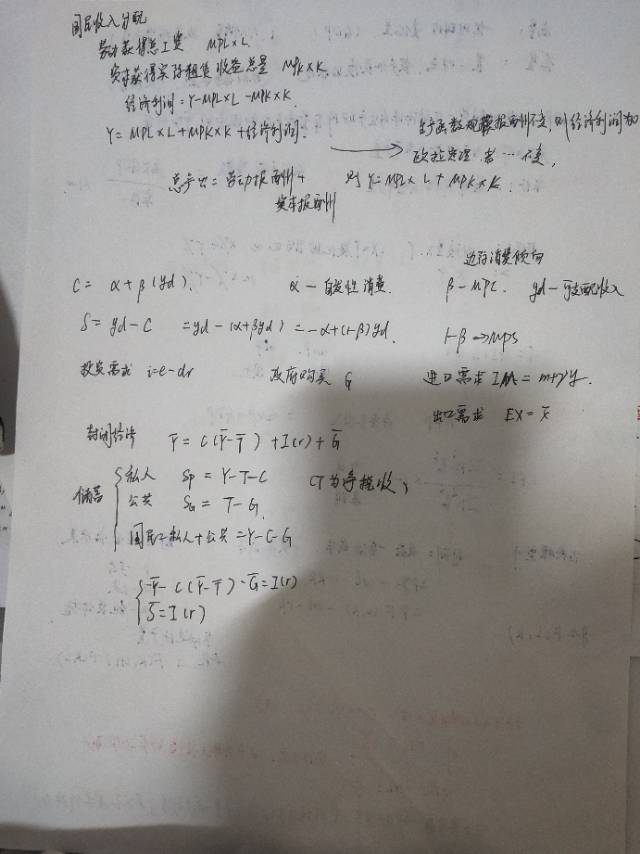 国民收入分配
劳动获得总工资 MPL×L
资本获得实际租赁收益总量 MPK×K
经济利润=Y-MPL×L-MPK×K
Y=MPL×L+MPK×K+经济利润.
生产函数规模报酬不变,则经济利润为0
欧拉定理 若…不变,
总产出=劳动报酬+资本报酬
则 Y=MPL×L+MPK×K.
边际消费倾向
C=α+β(yd). α—自发性消费 β—MPC. yd—可支配收入
S=yd-C =yd-(α+βyd)=-α+(1-β)yd. 1-β→MPS
投资需求 i=e-dr 政府购买 G 进口需求 IM=m+γy.
出口需求 EX=x̄
封闭经济 Ȳ=C(Ȳ-T̄)+I(r)+Ḡ
储蓄
私人 Sp=Y-T-C (T为净税收)
公共 SG=T-G.
国民=私人+公共=Y-C-G
Ȳ-C(Ȳ-T̄)-Ḡ=I(r)
S̄=I(r)